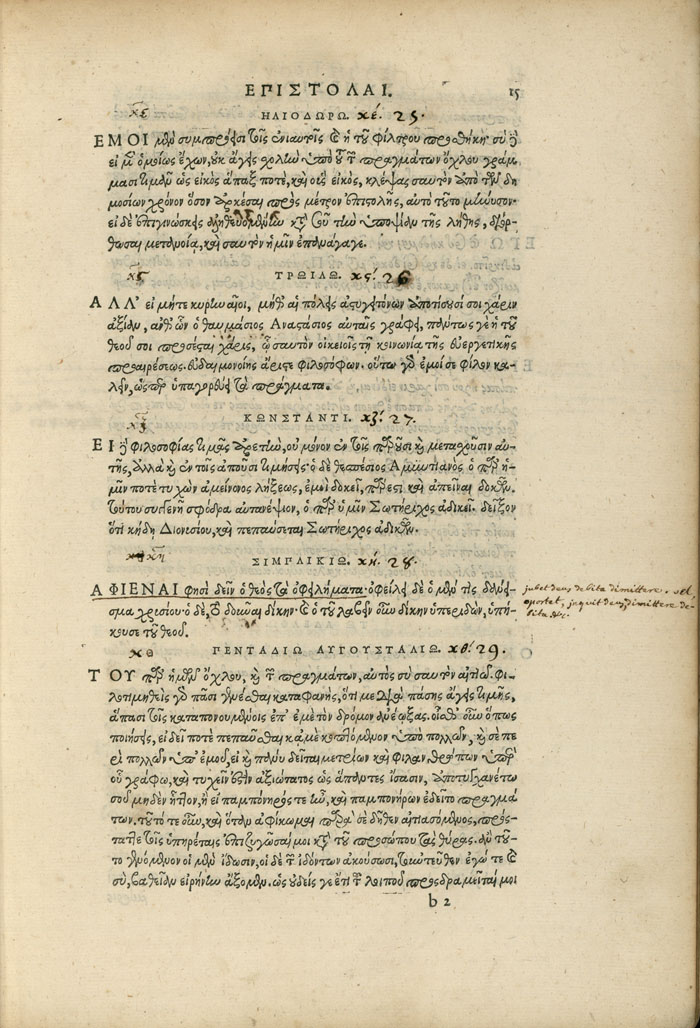 ΕΠΙΣΤΟΛΑΙ. 15
κε
ΗΛΙΟΔΩΡΩ. κέ. 25.
ΕΜΟΙ μὲν συμπρόεισι τοῖς ἐνιαυτοῖς καὶ ἡ τοῦ φίλτρου προσθήκη· σὺ δ'
εἰ μὲν ὁμοίως ἔχων, οὐκ ἄγεις σχολὴν ὑπὸ τοῦ τῶν πραγμάτων ὄχλου γράμ-
μασι τιμᾶν ὡς εἰκὸς ἅπαξ ποτέ, καὶ οἷς εἰκός, κλέψας σαυτὸν ἀπὸ τῶν δη
μοσίων χρόνον ὅσον ἀρκέσαι πρὸς μέτρον ἐπιστολῆς, αὐτὸ τοῦτο μήνυσον·
εἰ δὲ ἐπιγινώσκεις ἀληθευομένην κατὰ σοῦ τὴν ὑποψίαν τῆς λήθης, διόρ-
θωσαι μετανοίᾳ, καὶ σαυτὸν ἡμῖν ἐπανάγαγε.
κς
ΤΡΩΙΛΩ. κς. 26
ΑΛΛ' εἰ μήτε κύριννηοι, μήθ' αἱ πόλεις ἀστυγείτονων ἀποτίσουσί σοι χάριν
ἀξίαν, ἀνθ' ὧν ὁ θαυμάσιος Αναστάσιος αὐταῖς γράφει, πάντως γε ἡ τοῦ
θεοῦ σοι προσέσται χάρις, ᾧ σαυτὸν οἰκειοῖς τῇ κοινωνίᾳ τῆς εὐεργετικῆς
προαιρέσεως. εὐδαιμονοίης ἄριστε φιλοσόφων. οὕτω γὰρ ἐμοί σε φίλον κα-
λεῖν, ὥσπερ ὑπαγορεύει τὰ πράγματα.
κζ
ΚΩΝΣΤΑΝΤΙ. κζ. 27.
ΕΙ καὶ φιλοσοφίας τιμᾷς ἀρετὴν, οὐ μόνον ἐν τοῖς παροῦσι καὶ μεταχοῦσιν αὐ-
τῆς, ἀλλὰ καὶ ἐν τοῖς ἀποῦσι τιμήσεις· ὁ δὲ θεσπέσιος Αμιντιανὸς ὁ παρ' ἡ-
μῖν ποτὲ τυχὼν ἀμείνονος λήξεως, ἐμοὶ δοκεῖ, πάρεστι καὶ ἀπεῖναι δοκῶν.
τούτου συγγενῆ σφόδρα αὐτανέψιον, ὁ παρ' ὑμῖν Σωτήριχος ἀδικεῖ. δεῖξον
ὅτι κήδῃ Διονυσίου, καὶ πεπαύσεται Σωτήριχος ἀδικῶν.
κη
ΣΙΜΠΛΙΚΙΩ. κη. 28.
ΑΦΙΕΝΑΙ φησὶ δεῖν ὁ θεὸς τὰ ὀφειλήματα· ὀφείλει δὲ ὁ μὲν τὶς δάνει-
σμα χρυσίου· ὁ δὲ, τὸ δοῦναι δίκην· καὶ ὁ τοῦ λαβεῖν οὖν δίκην ὑπεριδὼν, ὑπή-
κουσε τοῦ θεοῦ.
jubet deus debita dimittere. vel,
oportet, inquit deus, dimittere de-
bita &c.
κθ
ΠΕΝΤΑΔΙΩ ΑΥΓΟΥΣΤΑΛΙΩ. κθ. 29.
ΤΟΥ παρ' ἡμῶν ὄχλου, καὶ τῶν πραγμάτων, αὐτὸς σὺ σαυτὸν αἰτιῶ. φι-
λοτιμηθεὶς γὰρ πᾶσι γενέσθαι καταφανὴς, ὅτι με διὰ πάσης ἄγεις τιμῆς,
ἅπασι τοῖς καταπονουμένοις ἐπ' ἐμὲ τὸν δρόμον ἀνέῳξας. οἶσθ' οὖν ὅπως
ποιήσεις, εἰ δεῖ ποτὲ πεπαῦσθαι κᾀμὲ κοπτόμενον ὑπὸ πολλῶν, καὶ σὲ πε
ρὶ πολλῶν ὑπ' ἐμοῦ, εἰ καὶ πάνυ δεῖται μετρίων καὶ φιλανθρώπων ὑπὲρ
οὗ γράφω, καὶ τυχεῖν ἐστὶν ἀξιώτατος ὡς ἅπαντες ἴσασιν, ἀποτυγχανέτω
σοῦ μηδὲν ἧττον, ἢ εἰ παμπόνηρός τε ἦν, καὶ παμπονήρων ἐδεῖτο πραγμά
των. τοῦτό τε οὖν, καὶ ὅταν ἀφίκωμαι παρὰ σὲ δῆθεν αἰτιασόμενος, πρόσ-
ταξε τοῖς ὑπηρέταις ἐπιζυγῶσαί μοι κατὰ τοῦ προσώπου τὰς θύρας. ἂν τοῦ-
το γενόμενον οἱ μὲν ἴδωσιν, οἱ δὲ τῶν ἰδόντων ἀκούσωσι, τοὐντεῦθεν ἐγώ τε καὶ
σὺ, βαθεῖαν εἰρήνην ἄξομεν. ὡς οὐδείς γε ἔτι τοῦ λοιποῦ προσδραμεῖταί μοι
b 2